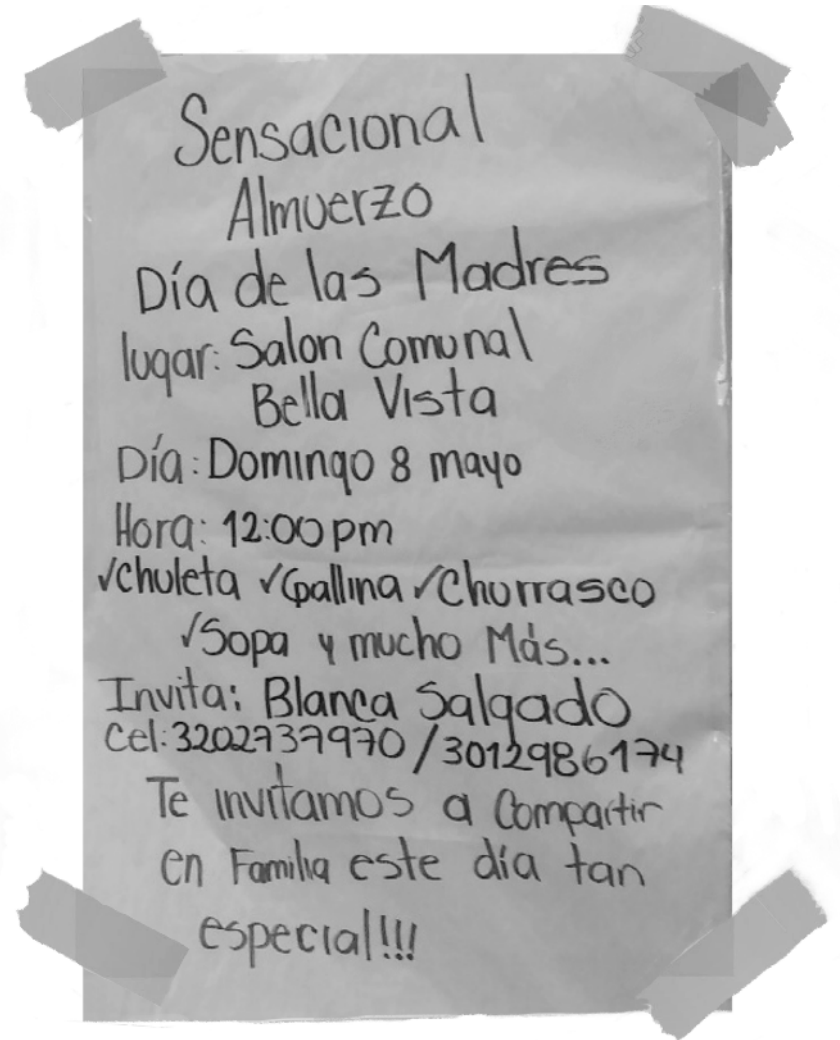 Sensacional
Almuerzo
Día de las Madres
lugar: Salon Comunal
Bella Vista
Día: Domingo 8 mayo
Hora: 12:00 pm
√Chuleta √Gallina √Churrasco
√Sopa y mucho Más...
Invita: Blanca Salgado
Cel: 3202737970 / 3012986174
Te invitamos a Compartir
en Familia este día tan
especial!!!